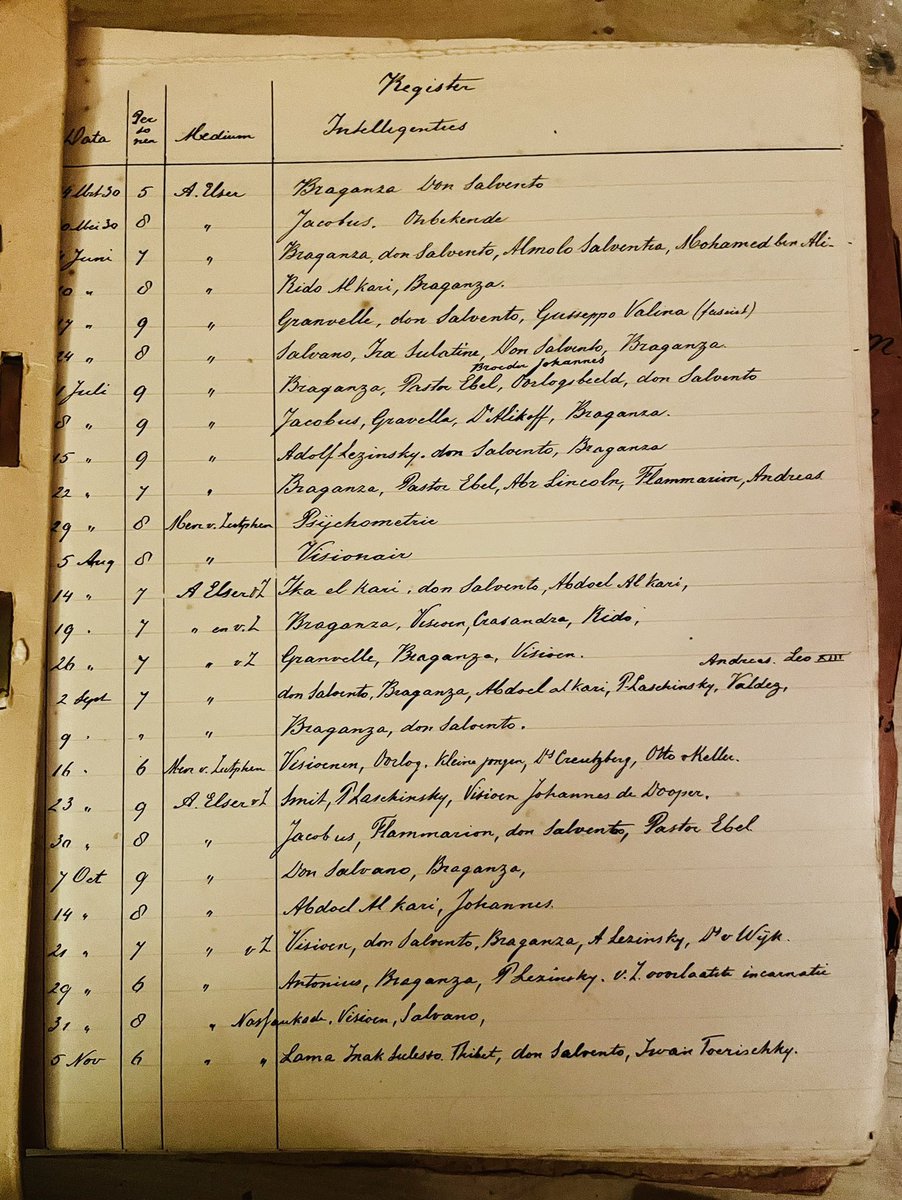 Register
Data Per so nen Medium Intelligenties
30 5 A. Elser Braganza Don Salvento
Mei 30 8 " Jacobus. Onbekende
Juni 7 " Braganza, don Salvento, Almolo Salventra, Mohamed ben Ali-
10 " 8 " Rido Al kari, Braganza.
17 " 9 " Granvelle, don Salvento, Gusseppo Valina (fascist)
24 " 8 " Salvano, Ira Sulatine, Don Salvento, Braganza.
Broeder Johannes
1 Juli 9 " Braganza, Pastor Ebel, Oorlogsbeeld, don Salvento
8 " 9 " Jacobus, Gravella, Dr Alikoff, Braganza.
15 " 9 " Adolf Lezinsky. don Salvento, Braganza
22 " 7 " Braganza, Pastor Ebel, Abr Lincoln, Flammarion, Andreas
29 " 8 Mevr v. Zutphen Psijchometrie
5 Aug 8 " Visionair
14 " 7 A Elser v Z Ika el kari, don Salvento, Abdoel Al kari,
19 . 7 " en v. Z Braganza, Visioen, Crasandra, Rido,
26 " 7 " v Z Granvelle, Braganza, Visioen.
Andreas. Leo XIII
2 Sept 7 " don Salvento, Braganza, Abdoel al kari, P Laschinsky, Valdez,
9 . " " Braganza, don Salvento.
16 . 6 Mevr v. Zutphen Visioenen, Oorlog. Kleine jongen, Ds Creutzberg, Otto v Keller.
23 " 9 A. Elser v Z Smit, P Laschinsky, Visioen Johannes de Dooper.
30 " 8 " Jacobus, Flammarion, don Salvento, Pastor Ebel
7 Oct 9 " Don Salvano, Braganza,
14 " 8 " Abdoel Al kari, Johannes
21 " 7 " v Z Visioen, don Salvento, Braganza, A Lezinsky, Dr v Wijk.
29 " 6 " Antonius, Braganza, P Lezinsky. v. Z. voorlaatste incarnatie
31 " 8 " Nassaukade. Visioen, Salvano,
5 Nov 6 " " Lama Inak Sulesso. Thibet, don Salvento, Iwan Toerischky.